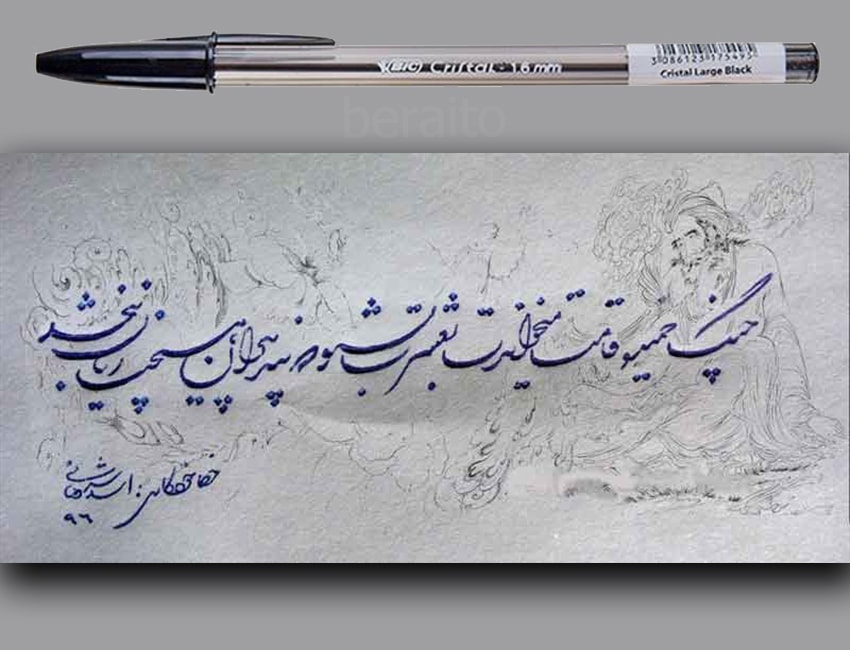 BIC Cristal · 1.6 mm
3 086123 175495
Cristal Large Black
beraito
چنگ خمیده قامت میخواندت بعشرت بشنو که پند پیران هیچت زیان نبخشد
۹۶